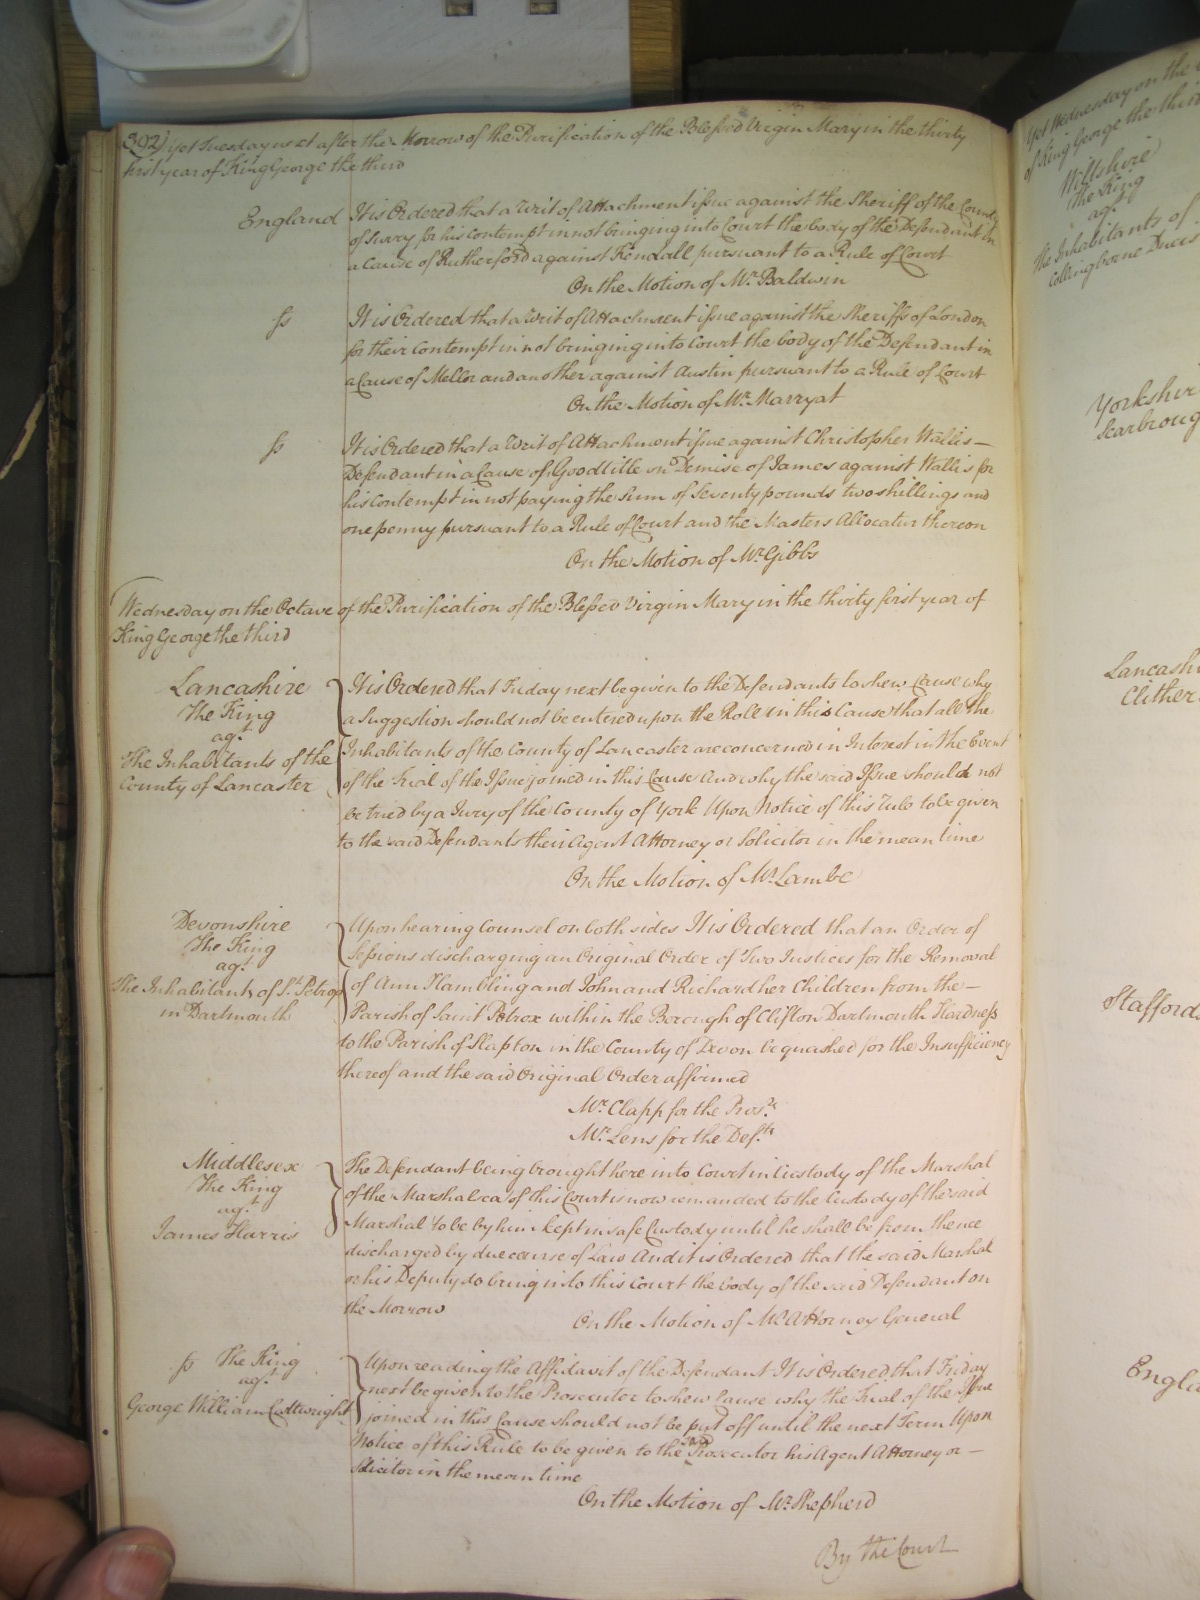 302) Yet Tuesday next after the Morrow of the Purification of the Blessed Virgin Mary in the thirty
first year of King George the third
England It is Ordered that a Writ of Attachment issue against the Sheriff of the County
of Surry for his Contempt in not bringing into Court the body of the Defendant in
a Cause of Rutherford against Kendall pursuant to a Rule of Court
On the Motion of Mr. Baldwin
ss It is Ordered that a Writ of Attachment issue against the Sheriffs of London
for their Contempt in not bringing into Court the body of the Defendant in
a Cause of Mellor and another against Austin pursuant to a Rule of Court
On the Motion of Mr. Marryat
ss It is Ordered that a Writ of Attachment issue against Christopher Wallis —
Defendant in a Cause of Goodtitle on Demise of James against Wallis for
his Contempt in not paying the Sum of Seventy pounds two shillings and
one penny pursuant to a Rule of Court and the Masters Allocatur thereon
On the Motion of Mr. Gibbs
Wednesday on the Octave of the Purification of the Blessed Virgin Mary in the thirty first year of
King George the third
Lancashire
The King
agt.
The Inhabitants of the
County of Lancaster
It is Ordered that Friday next be given to the Defendants to shew Cause why
a Suggestion should not be entered upon the Roll in this Cause that all the
Inhabitants of the County of Lancaster are concerned in Interest in the Event
of the Trial of the Issue joined in this Cause And why the said Issue should not
be tried by a Jury of the County of York Upon Notice of this Rule to be given
to the said Defendants their Agent Attorney or Solicitor in the mean time
On the Motion of Mr. Lambe
Devonshire
The King
agt.
The Inhabitants of St. Petrox
in Dartmouth
Upon hearing Counsel on both sides It is Ordered that an Order of
Sessions discharging an Original Order of Two Justices for the Removal
of Ann Hambling and John and Richard her Children from the —
Parish of Saint Petrox within the Borough of Clifton Dartmouth Hardness
to the Parish of Slapton in the County of Devon be quashed for the Insufficiency
thereof and the said Original Order affirmed
Mr. Clapp for the Prosr.
Mr. Lens for the Defts.
Middlesex
The King
agt.
James Harris
The Defendant being brought here into Court in Custody of the Marshal
of the Marshalsea of this Court is now remanded to the Custody of the said
Marshal to be by him kept in safe Custody until he shall be from thence
discharged by due course of Law And it is Ordered that the said Marshal
or his Deputy do bring into this Court the body of the said Defendant on
the Morrow
On the Motion of Mr. Attorney General
ss The King
agt.
George William Cuttwright
Upon reading the Affidavit of the Defendant It is Ordered that Friday
next be given to the Prosecutor to shew Cause why the Trial of the Issue
joined in this Cause should not be put off until the next Term Upon
Notice of this Rule to be given to the said Prosecutor his Agent Attorney or —
Solicitor in the mean time
On the Motion of Mr. Shepherd
By the Court
Yet Wednesday on the
of King George the third
Wiltshire
The King
agt.
The Inhabitants of
Collingborne Duces
Yorkshir
Scarbroug
Lancashi
Clither
Staffords
Engla